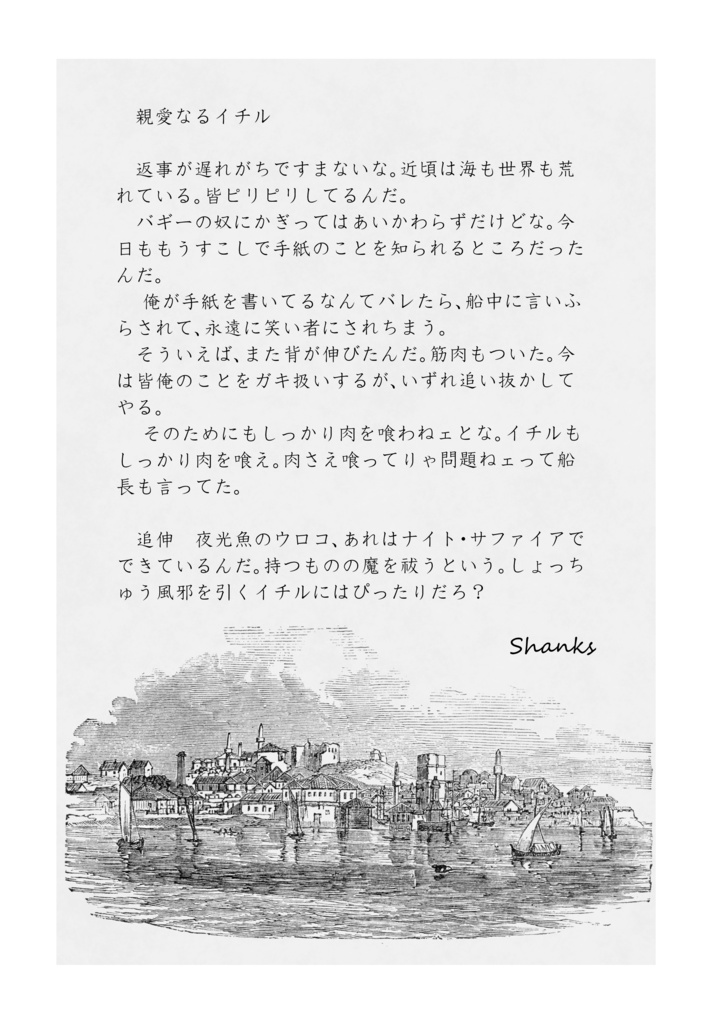 親愛なるイチル
返事が遅れがちですまないな。近頃は海も世界も荒
れている。皆ピリピリしてるんだ。
バギーの奴にかぎってはあいかわらずだけどな。今
日ももうすこしで手紙のことを知られるところだった
んだ。
俺が手紙を書いてるなんてバレたら、船中に言いふ
らされて、永遠に笑い者にされちまう。
そういえば、また背が伸びたんだ。筋肉もついた。今
は皆俺のことをガキ扱いするが、いずれ追い抜かして
やる。
そのためにもしっかり肉を喰わねェとな。イチルも
しっかり肉を喰え。肉さえ喰ってりゃ問題ねェって船
長も言ってた。
追伸　夜光魚のウロコ、あれはナイト・サファイアで
できているんだ。持つものの魔を祓うという。しょっち
ゅう風邪を引くイチルにはぴったりだろ？
Shanks